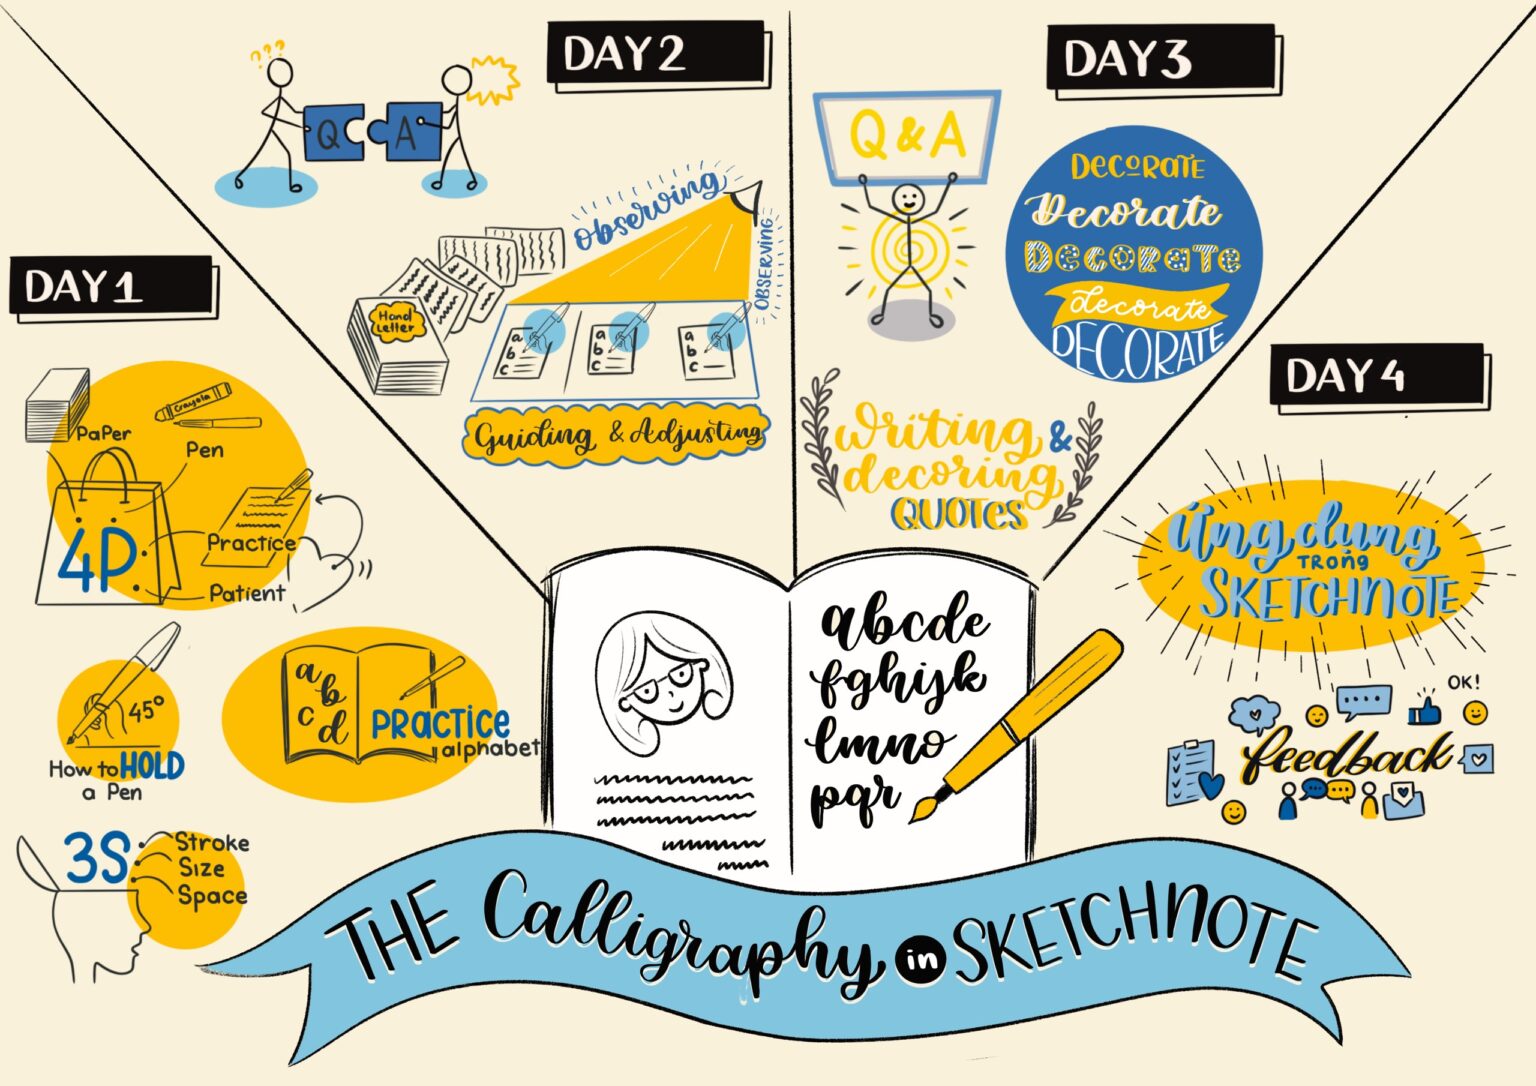 DAY 1
Paper
Pen
4P
Practice
Patient
Crayola
45°
How to HOLD
a Pen
a
b
c
d
PRACTICE
alphabet
3S
Stroke
Size
Space
DAY 2
???
Q
A
Hand
Letter
Observing
OBSERVING
a
b
c
a
b
c
a
b
c
Guiding & Adjusting
DAY 3
Q & A
DECORATE
Decorate
DECORATE
decorate
DECORATE
Writing &
decoring
QUOTES
DAY 4
Ứng dụng
TRONG
SKETCHNOTE
OK!
feedback
abcde
fghijk
lmno
pqr
THE Calligraphy in SKETCHNOTE